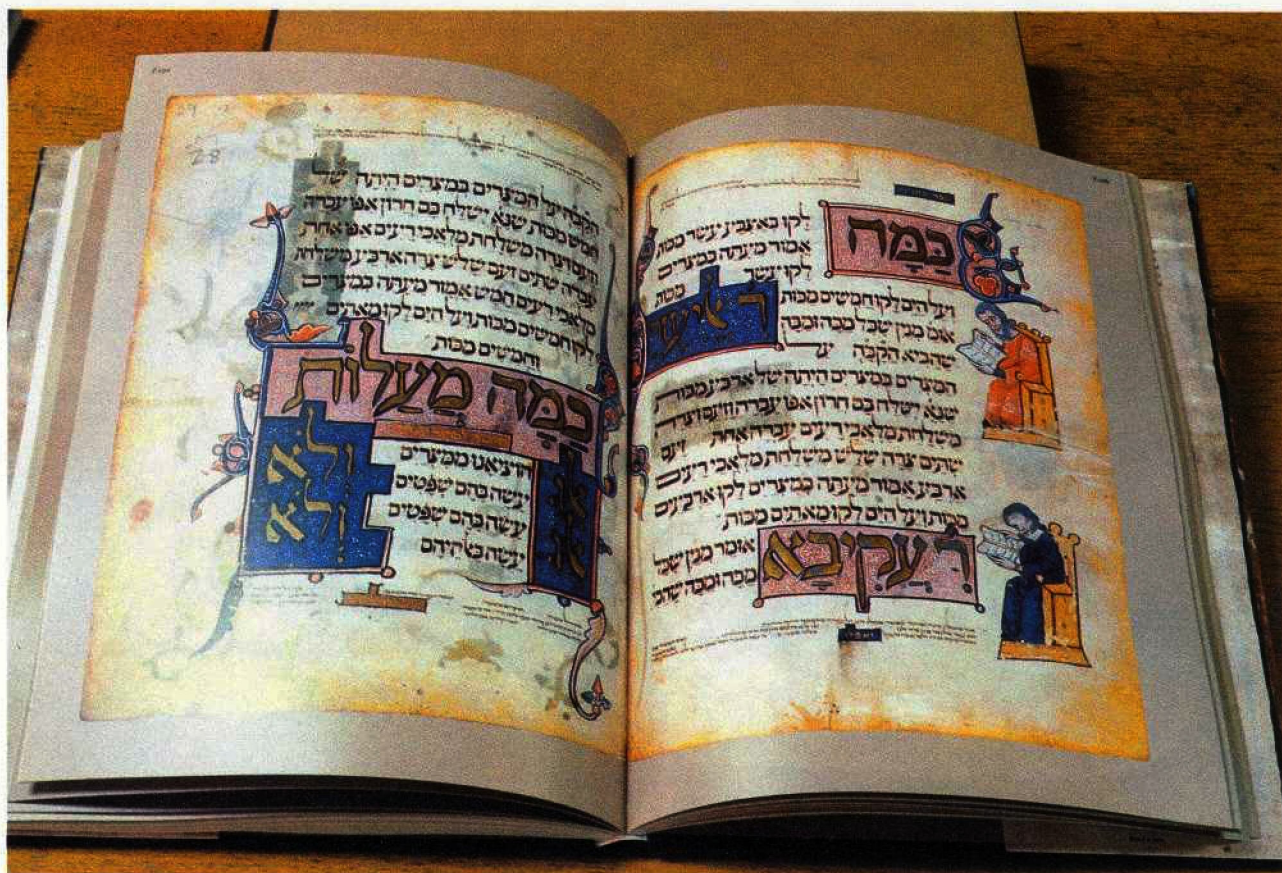 כַּמָּה
לקו באצבע עשר מכות
אמור מעתה במצרים
לקו עשר מכות
ועל הים לקו חמשים מכות
ר איעזר
אומ מנין שכל מכה ומכה
שהביא הקבה על
המצרים במצרים היתה של ארבע מכות
שנא ישלח בם חרון אפו עברה וזעם וצרה
משלחת מלאכי רעים עברה אחת זעם
שתים צרה שלש משלחת מלאכי רעים
ארבע אמור מעתה במצרים לקו ארבעים
מכות ועל הים לקו מאתים מכות
ר עקיבא
אומר מנין שכל
מכה ומכה שהבי
הקבה על המצרים במצרים היתה של
חמש מכות שנא ישלח בם חרון אפו עברה
וזעם וצרה משלחת מלאכי רעים אפו אחת
עברה שתים זעם שלש צרה ארבע משלחת
מלאכי רעים חמש אמור מעתה במצרים
לקו חמשים מכות ועל הים לקו מאתים
וחמשים מכות
כַּמָּה מַעֲלוֹת
אלו הוציאנו ממצרים ולא
ועשה בהם שפטים
אלו עשה בהם שפטים ולא
ועשה באלהיהם
28